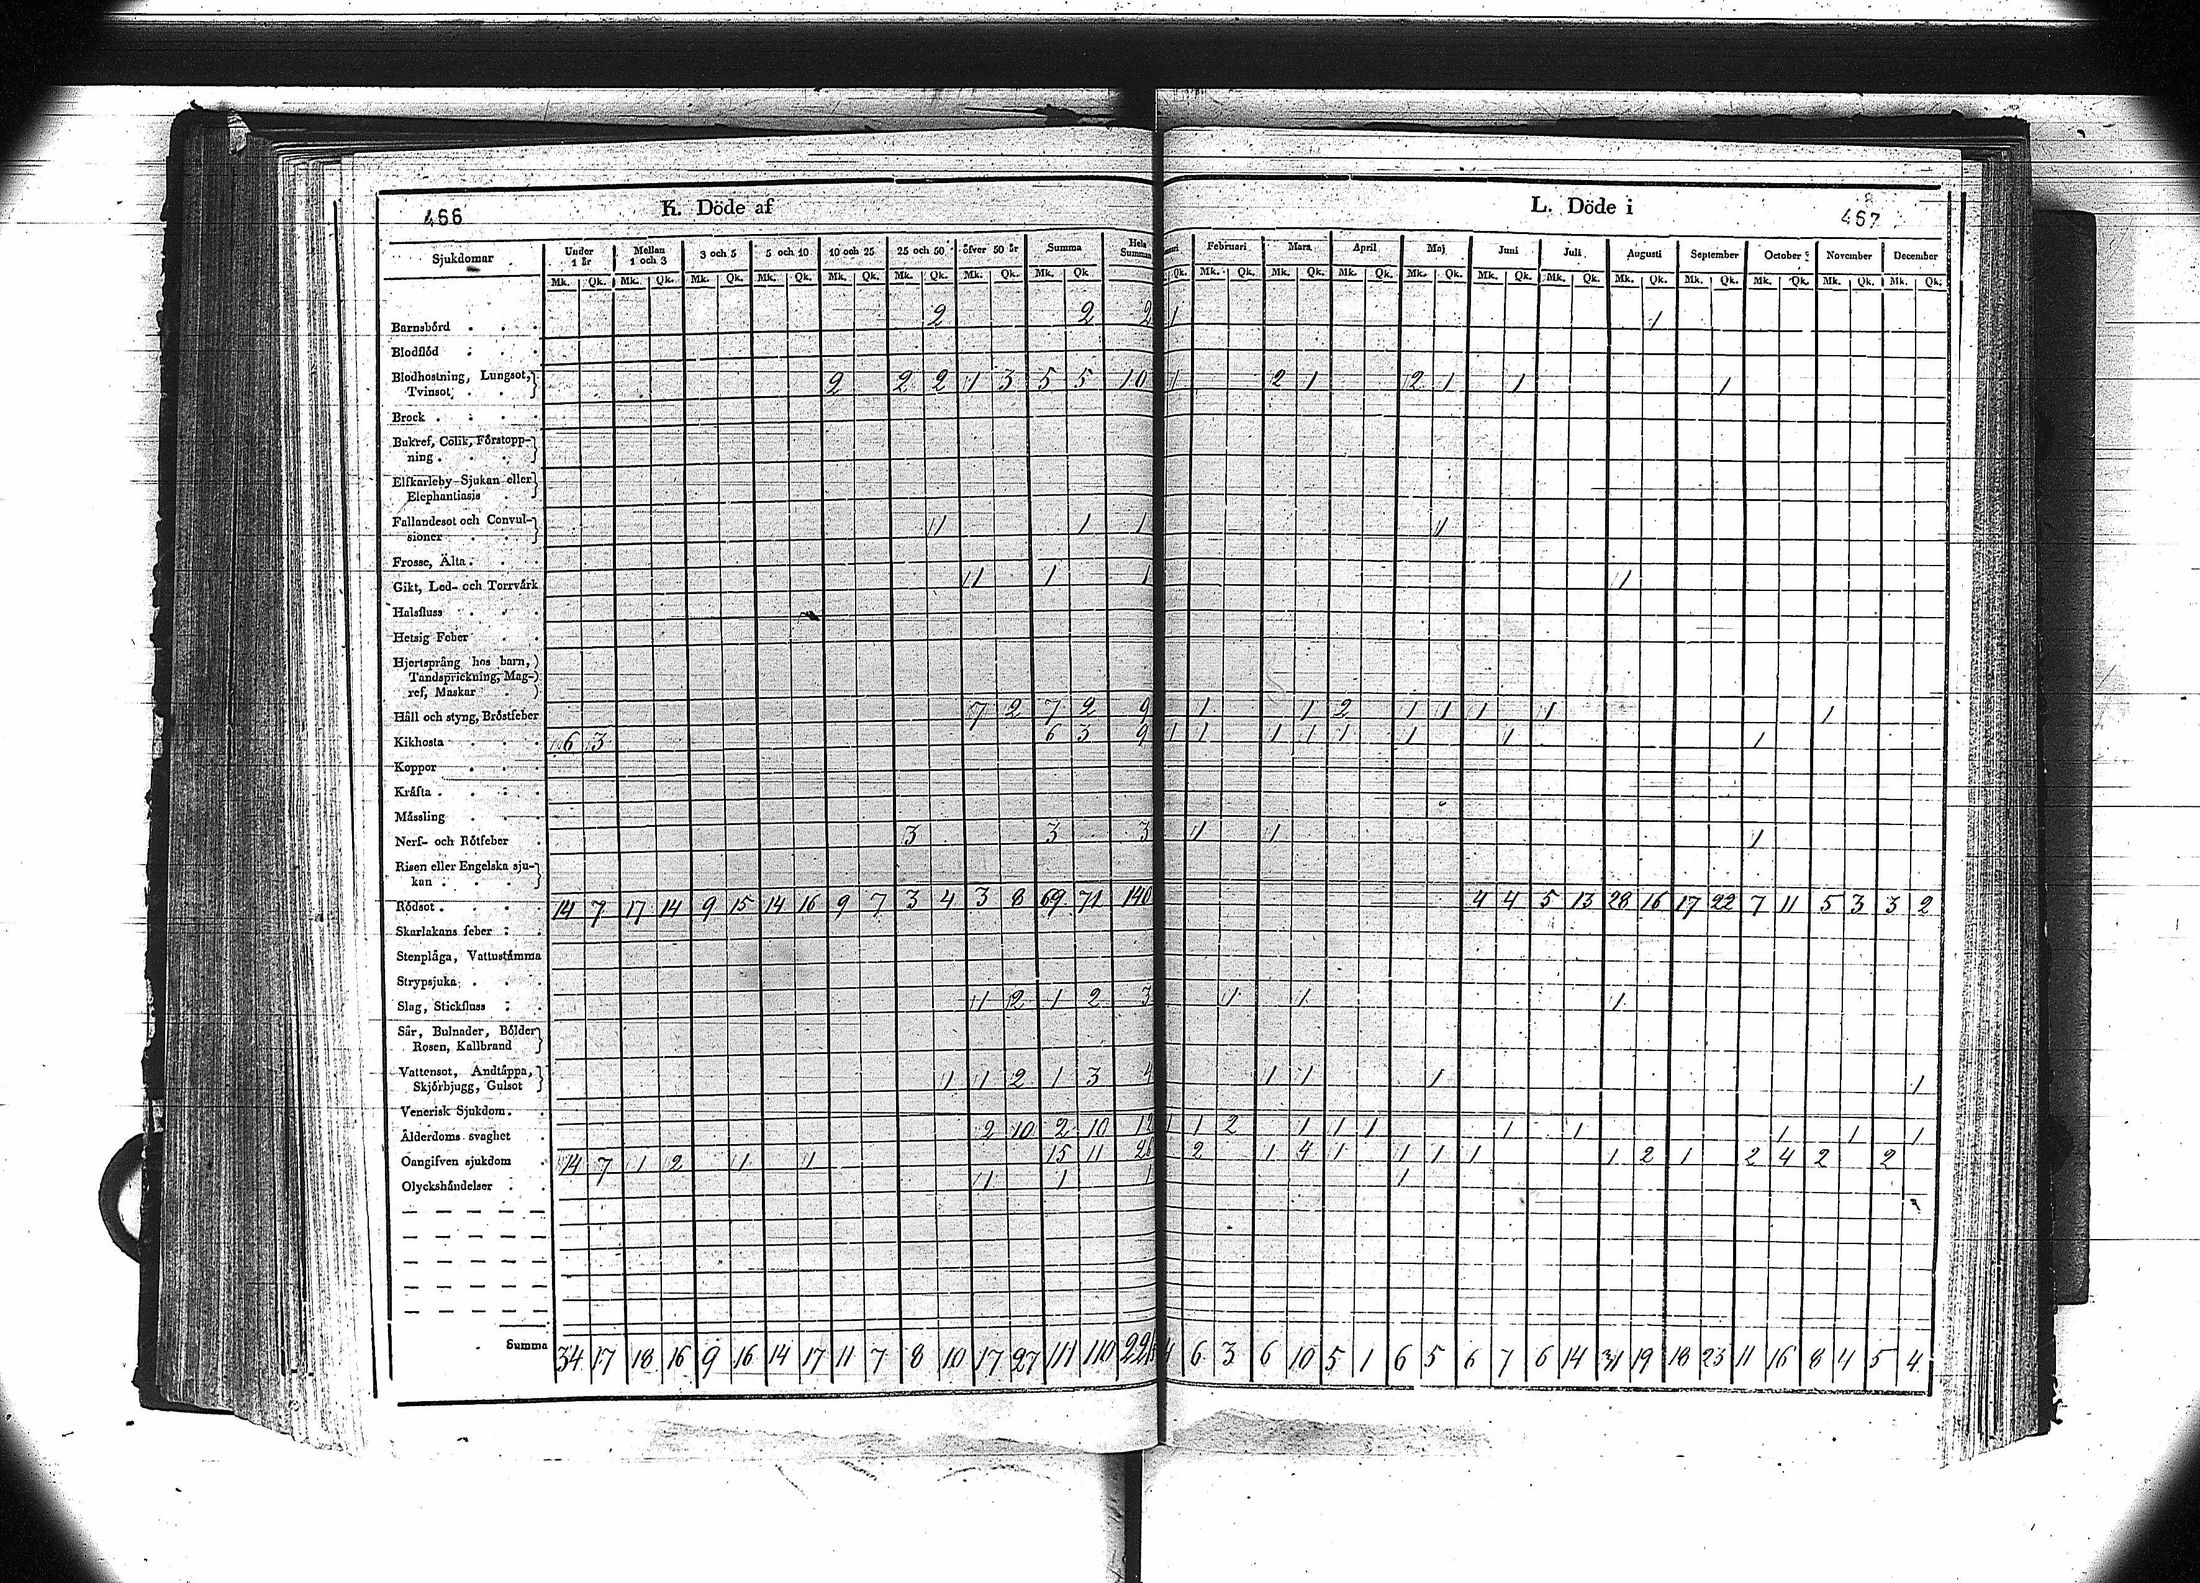 466
K. Döde af
Sjukdomar | Under 1 år | Mellan 1 och 3 | 3 och 5 | 5 och 10 | 10 och 25 | 25 och 50 | öfver 50 år | Summa | Hela Summan
Mk. Qk. Mk. Qk. Mk. Qk. Mk. Qk. Mk. Qk. Mk. Qk. Mk. Qk. Mk. Qk
Barnsbörd . . . 2 2 2
Blodflöd . . .
Blodhostning, Lungsot,
Tvinsot . . 2 2 2 1 3 5 5 10
Brock . . . .
Bukref, Colik, Förstopp-
ning . . .
Elfkarleby-Sjukan eller
Elephantiasis .
Fallandesot och Convul-
sioner . . . 1 1 1
Frosse, Älta . . .
Gikt, Led- och Torrvärk 1 1 1
Halsfluss . . .
Hetsig Feber . .
Hjertsprång hos barn,
Tandsprickning, Mag-
ref, Maskar .
Håll och styng, Bröstfeber 7 2 7 2 9
Kikhosta . . . 6 3 6 3 9
Koppor . . .
Kräfta . . . .
Mässling . . .
Nerf- och Rötfeber . 3 3 3
Risen eller Engelska sju-
kan . . .
Rödsot . . . . 14 7 17 14 9 15 14 16 9 7 3 4 3 8 69 71 140
Skarlakans feber . .
Stenplåga, Vattustämma
Strypsjuka . . .
Slag, Stickfluss . . 1 2 1 2 3
Sår, Bulnader, Bölder
Rosen, Kallbrand
Vattensot, Andtäppa,
Skjörbjugg, Gulsot 1 1 2 1 3 4
Venerisk Sjukdom . .
Ålderdoms svaghet . 2 10 2 10 12
Oangifven sjukdom . 14 7 1 2 1 1 15 11 26
Olyckshändelser . . 1 1 1
Summa 34 17 18 16 9 16 14 17 11 7 8 10 17 27 111 110
L. Döde i
467
Februari | Mars | April | Maj | Juni | Juli | Augusti | September | October | November | December
Qk. Mk. Qk. Mk. Qk. Mk. Qk. Mk. Qk. Mk. Qk. Mk. Qk. Mk. Qk. Mk. Qk. Mk. Qk. Mk. Qk. Mk. Qk.
1 1
1 2 1 2 1 1 1
1
1
1 1 2 1 1 1 1 1
1 1 1 1 1 1 1 1
1 1 1
4 4 5 13 28 16 17 22 7 11 5 3 3 2
1 1 1
1 1 1 1
1 1 2 1 1 1 1 1 1 1 1
2 1 4 1 1 1 1 1 2 1 2 4 2 2
1
4 6 3 6 10 5 1 6 5 6 7 6 14 31 19 18 23 11 16 8 4 5 4